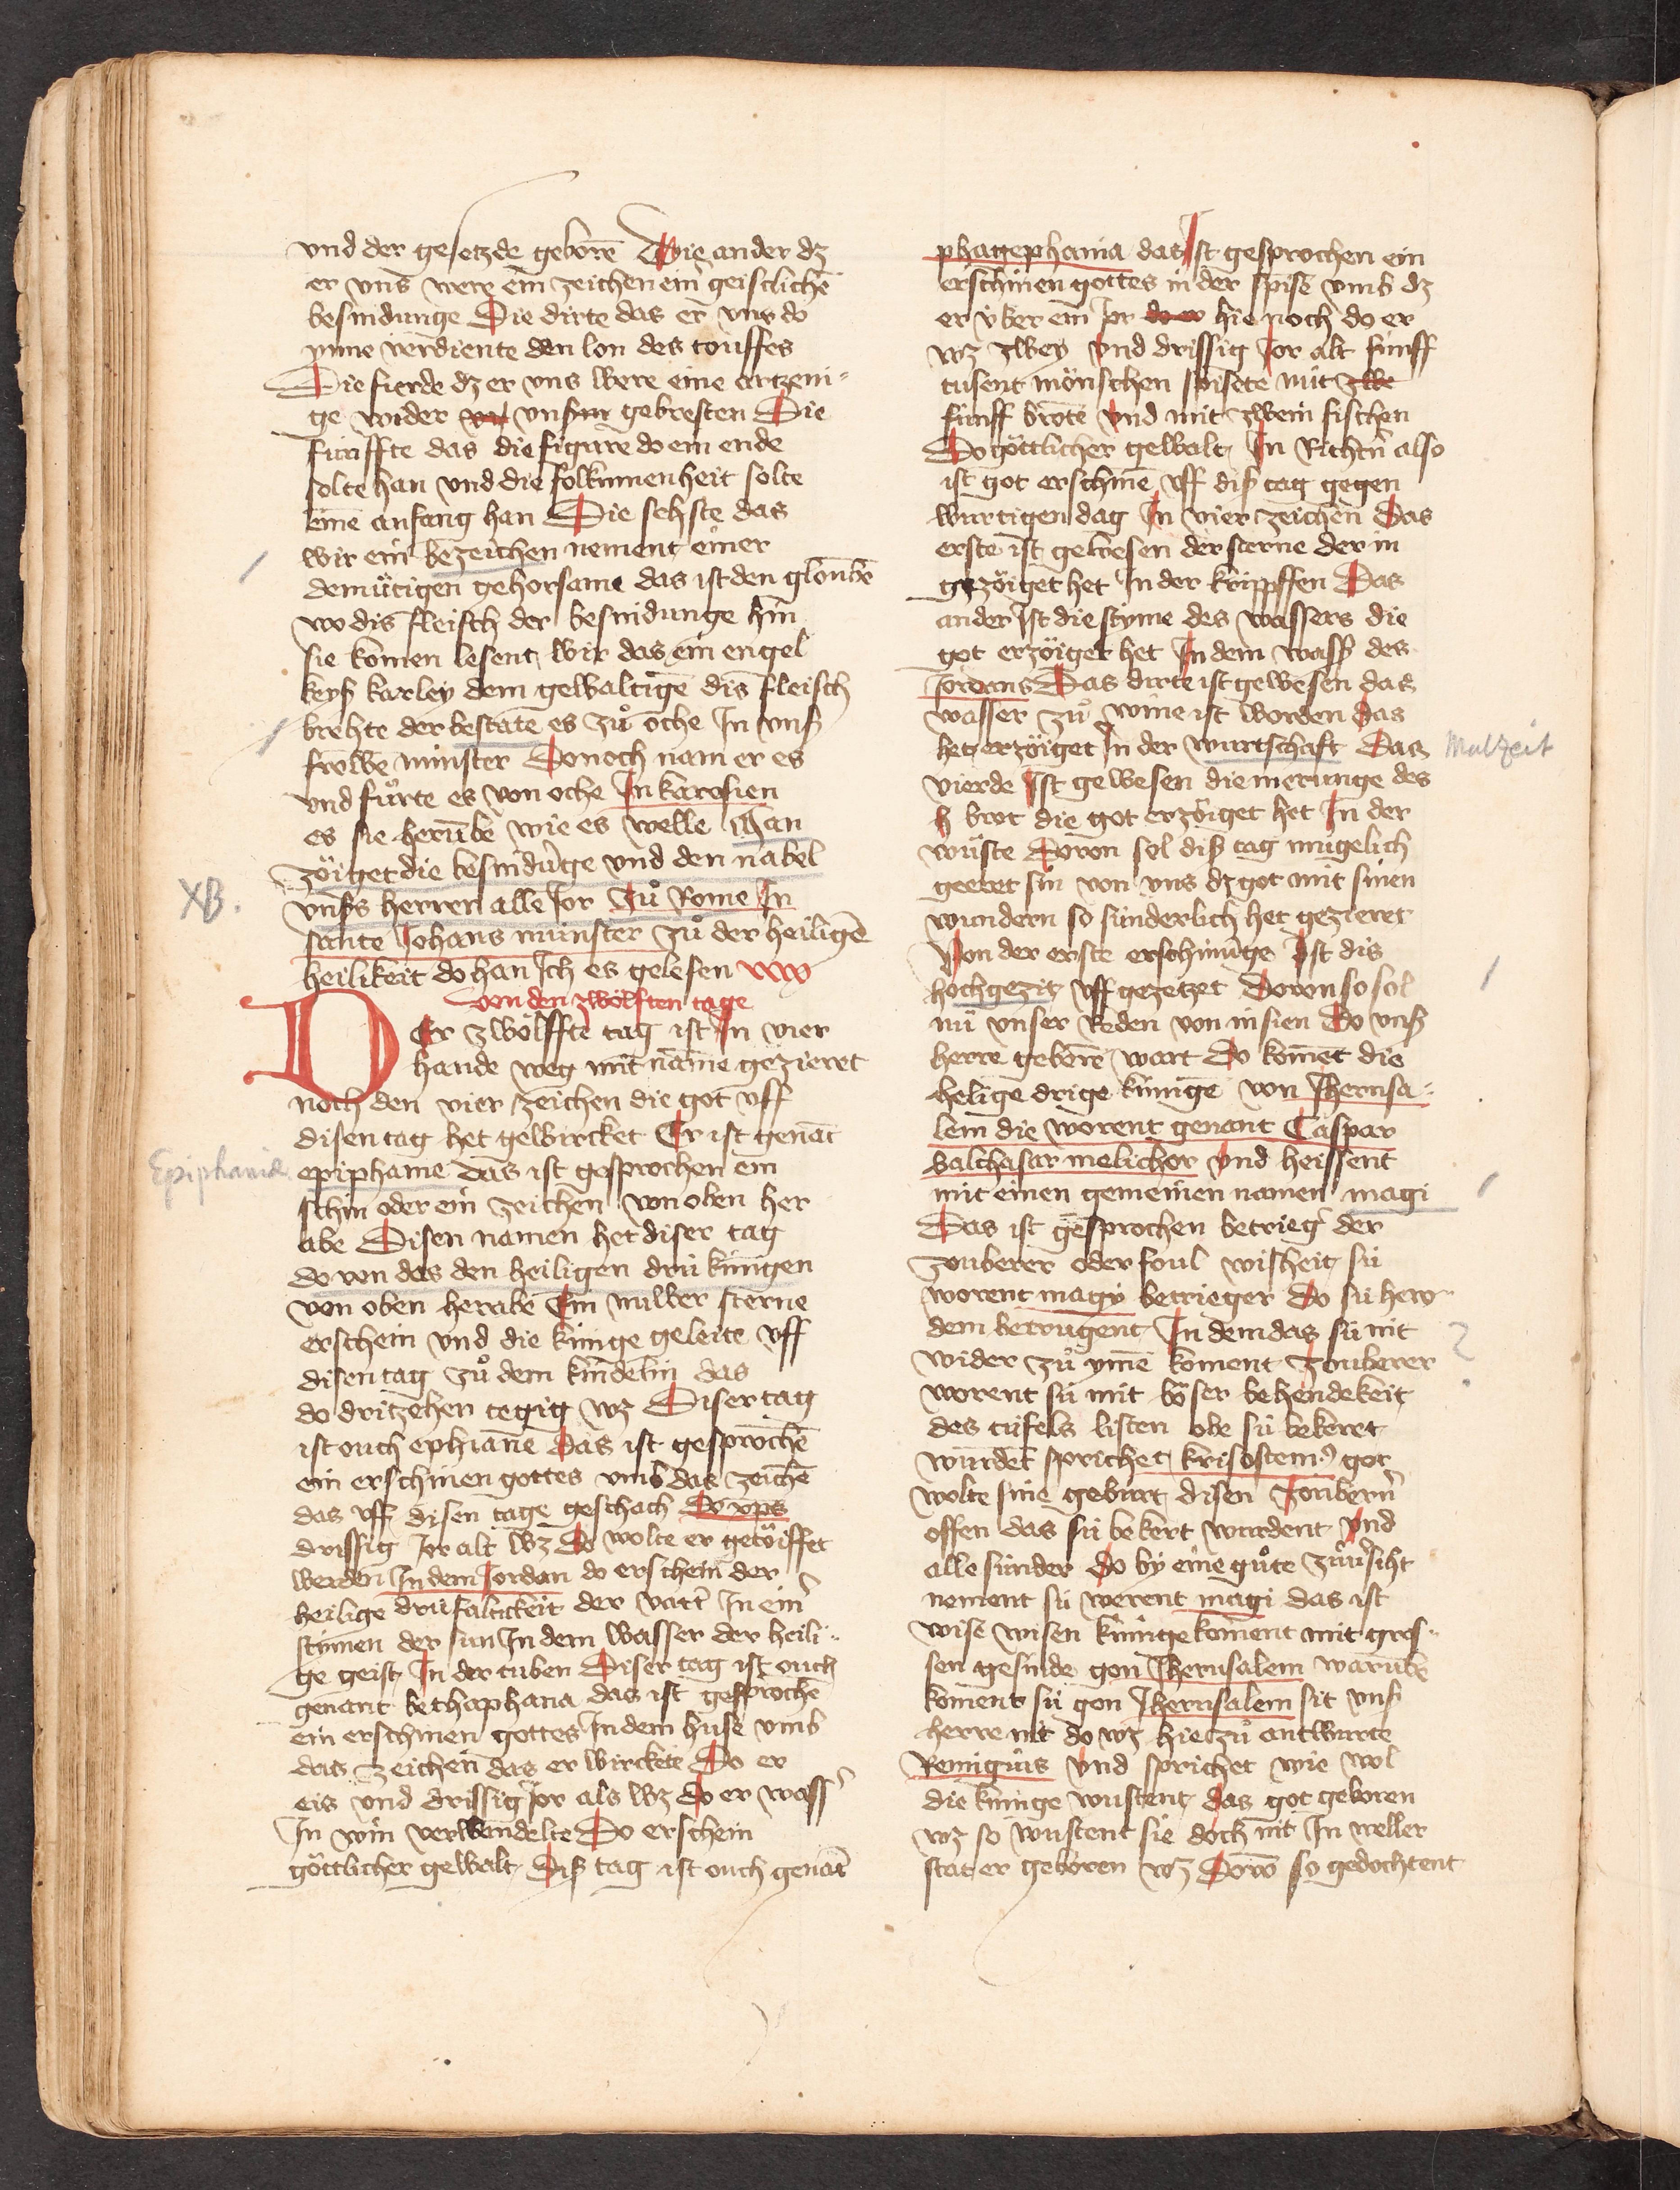 vnd der gesetzde geborē Die ander dz
er vns were ein zeichen ein̾ geistlichē
besnidunge Die dirte das er vns do
ynne verdiente den lon des touffes
Die fierde dz er vns were eine artzeni-
ge wider vnsern gebresten Die
fúnffte das die figure do ein ende
solte han vnd die folkumenheit solte
einē anfang han Die sehste das
wir ein bezeichen nement einer
demütigen gehorsame das ist den gloubē
wo dis fleisch der besnidunge hin
sie komen lesent wir das ein engel
keyß karley dem gewaltigē dis fleisch
brehte der bestate es zů oche In vnß
frowē múnster Donoch nam er es
vnd fůrte es von oche In karosien
es sie herubē wie es welle Man
zöiget die besnidūge vnd den nabel
vnß̾s herren alle Jor Zů Rome In
sante Johans múnster zů der heiligē
heilikeit do han Ich es gelesen
von den zwölften tage
Der zwölffte tag ist In vier
hande weg mit name gezieret
noch den vier zeichen die got vff
disen tag het gewircket Er ist genāt
Epiphanie
epiphanie das ist gesprochen ein
schin oder ein zeichen von oben her
abe Disen namen het diser tag
do von das den heiligen drú kúnigen
von oben herabe Ein núwer sterne
erschein vnd die kúnige geleite vff
disen tag zů dem kindelin das
do dritzehen tegig wz Diser tag
ist ouch ephianē das ist gesprochē
ein erschinen gottes vmb das zeichē
das vff disen tage geschach Do xp̄s
drissig Jor alt wz Do wolte er getöiffet
werden In dem Jordan do erschein der
heilige drúfaltikeit der vatt̾ In ein̾
stÿmen der sun In dem wasser der heili-
ge geist In der tuben Diser tag ist ouch
genant bethaphana das ist gesprochē
ein erschinen gottes In dem huse vmb
das zeichen das er wirckete Do er
eis vnd drissig Jor als wz do er wass̾
In win verwandelte Do erschein
göttlicher gewalt Diß tag ist ouch genāt
phagephania das Ist gesprochen ein
erschinen gottes in der spise vmb dz
er v́ber ein Jor hie noch do er
wz zwey vnd drissig Jor alt fúnff
tusent mönschen spisete mit
fúnff brote vnd mit zwein fischen
Do göttlicher gewalt In also
ist got erschinē vff diß tag gegen
wurtigen dag In vier zeichen Das
erste ist gewesen der sterne der in
gezöiget het In der kripffen Das
ander Ist die stÿme des wassers die
got erzöiget het In dem wasß des
Jordans Das dirte ist gewesen das
wasser zů wine ist worden das
het erzöiget In der wurtschaft Das
Malzeit
vierde Ist gewesen die merunge des
brot die got erzöiget het In der
wúste Doron sol diß tag mugelich
geeret sin von vns dz got mit sinen
wundern so súnderlich het gezieret
Von der erste erschinūge Ist dis
hochgezit vff gezetzet Doron so sol
nú vnser Reden von in sien Do vnß
herre geborē wart Do komēt die
helige drige kúnige von Jherusa-
lem die worent genant Caspar
balthasar melichor vnd heissent
mit einen gemeinen namen magi
Das ist gesprochen betrieg̾ der
zouberer oder foul wisheit sú
worent magÿ betrieger Do sú hero-
dem betrugent In dem das sú nit
wider zů ymē koment zouberer
worent sú mit böser behendekeit
des túfels listen obe sú bekeret
wurdēt sprichet krisostem⁹ got
wolte sine geburt disen zoubern̾
offen das sú bekert wurdent vnd
alle súnder do by eine gůte zův̾siht
nement sú werent magi das ist
wise wisen kúnige koment mit gros-
sen gesinde gon Jherusalem warūb
koment sú gon Jherusalem sit vnß
herre nit do wz hie zů antwurte
Remigius vnd sprichet wie wol
die kúnige wustent das got geboren
wz so wustent sie doch nit In weller
stat er geboren wz Dorō so gedochtent